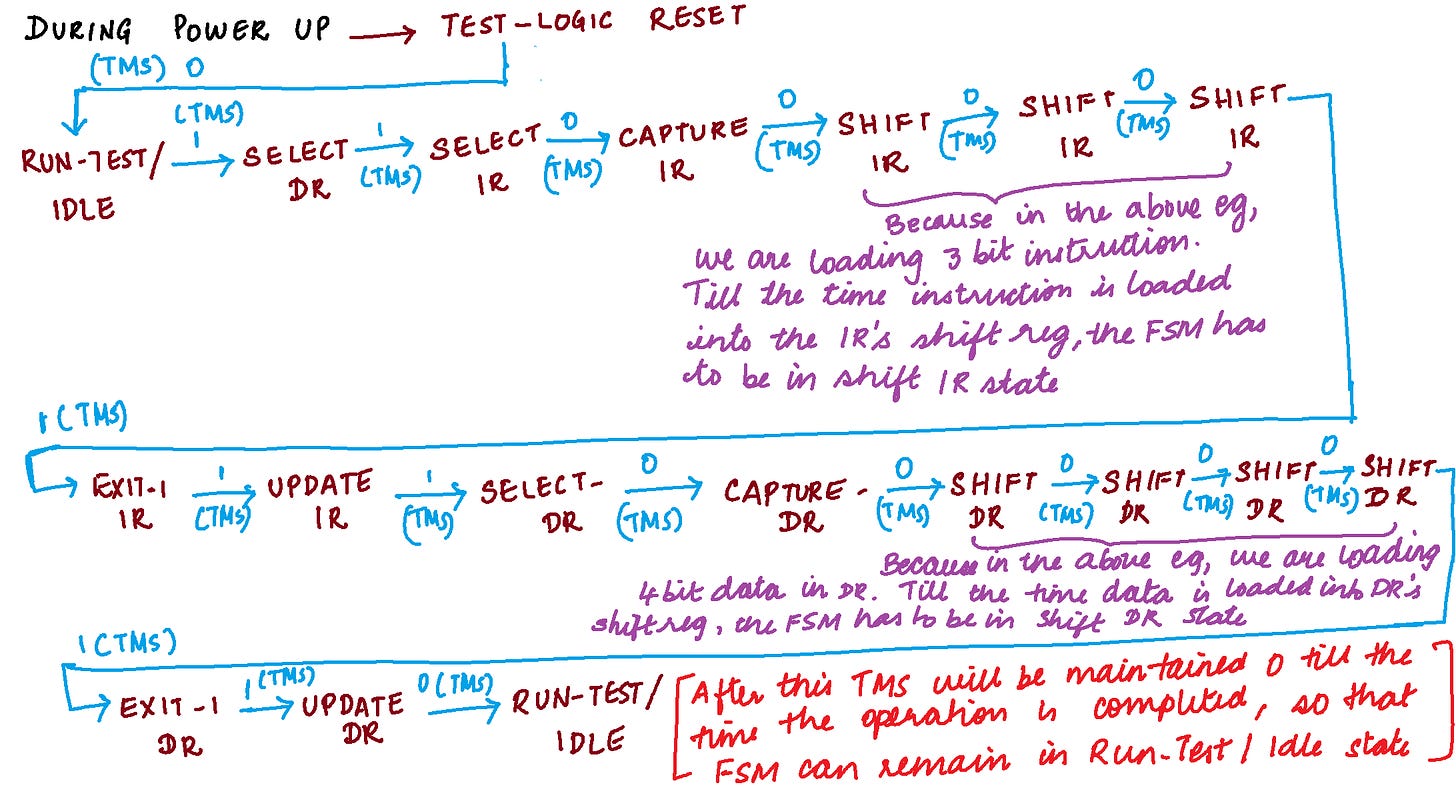 DURING POWER UP → TEST-LOGIC RESET
(TMS) 0
(TMS)
RUN-TEST/ 1 → SELECT 1 → SELECT 0 → CAPTURE 0 → SHIFT 0 → SHIFT 0 → SHIFT
IDLE DR (TMS) IR (TMS) IR (TMS) IR (TMS) IR (TMS) IR
Because in the above eg,
we are loading 3 bit instruction.
Till the time instruction is loaded
into the IR's shift reg, the FSM has
to be in shift IR state
1 (TMS)
EXIT-1 1 → UPDATE 1 → SELECT- 0 → CAPTURE - 0 → SHIFT 0 → SHIFT 0 → SHIFT 0 → SHIFT
IR (TMS) IR (TMS) DR (TMS) DR (TMS) DR (TMS) DR (TMS) DR (TMS) DR
Because in the above eg, we are loading
4 bit data in DR. Till the time data is loaded into DR's
shift reg, the FSM has to be in shift DR state
1 (TMS)
EXIT-1 1 (TMS) → UPDATE 0 (TMS) → RUN-TEST/
DR DR IDLE
[After this TMS will be maintained 0 till the
time the operation is completed, so that
FSM can remain in Run-Test / Idle state]